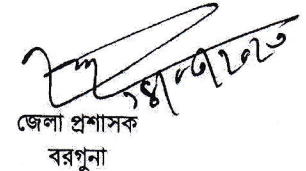 জেলা প্রশাসক
বরগুনা